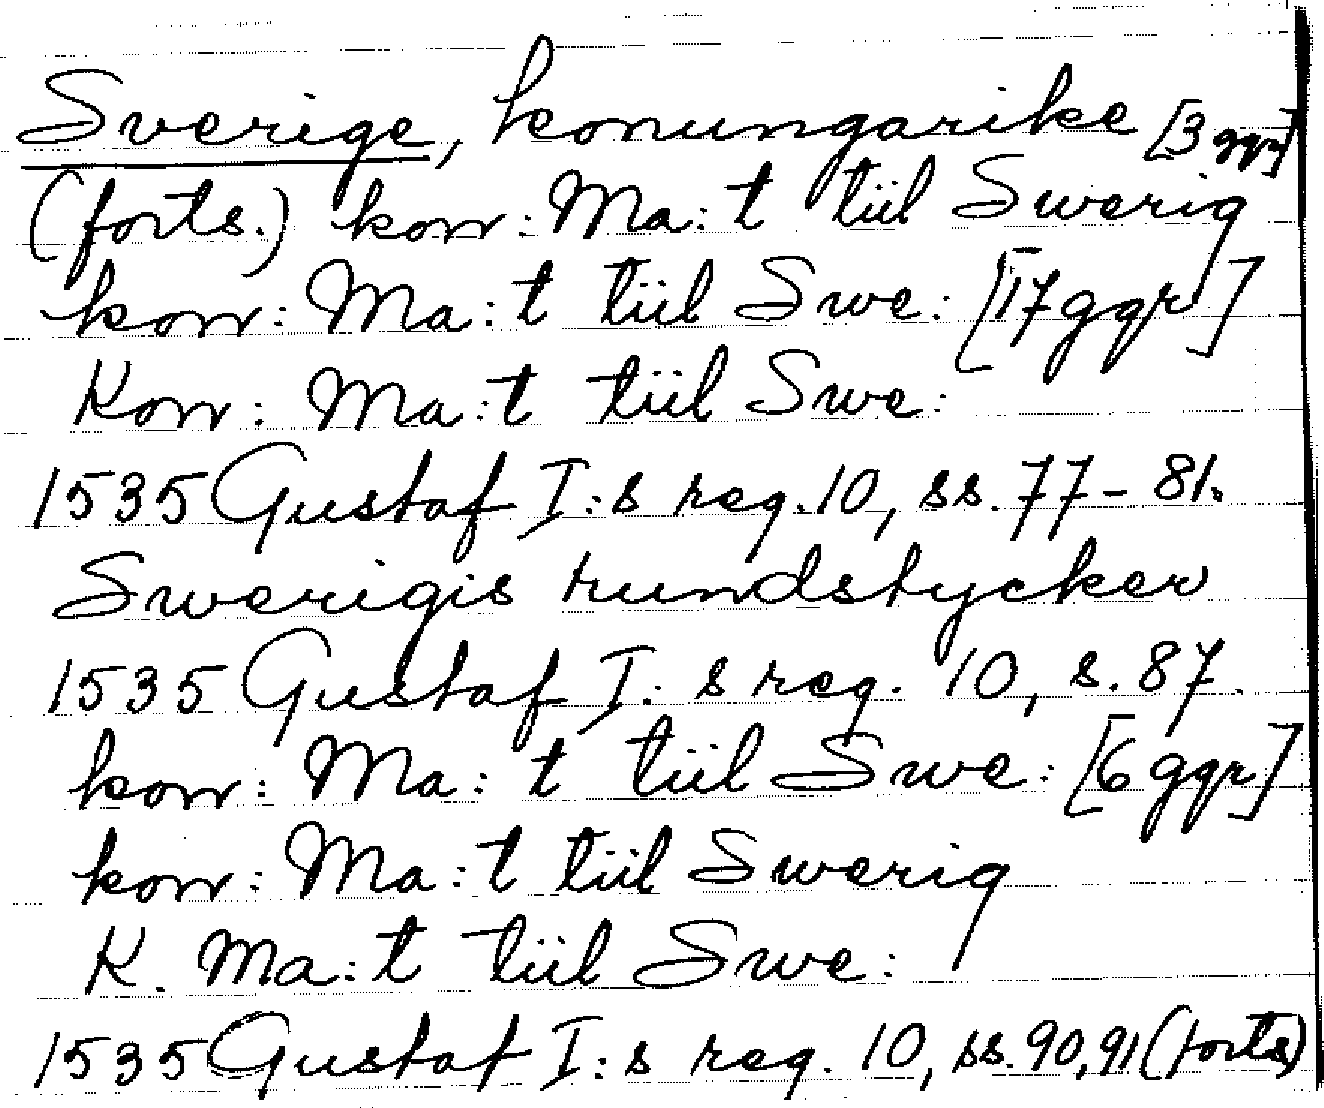 Sverige, konungarike [3 ggr]
(forts.) konr: Ma:t tiil Swerig
konr: Ma:t tiil Swe: [17 ggr]
Konr: Ma:t tiil Swe:
1535 Gustaf I:s reg. 10, ss. 77-81.
Swerigis rundstycker
1535 Gustaf I:s reg. 10, s. 87.
konr: Ma:t tiil Swe: [6 ggr]
konr: Ma:t tiil Swerig
K. Ma:t tiil Swe:
1535 Gustaf I:s reg. 10, ss. 90, 91 (forts)